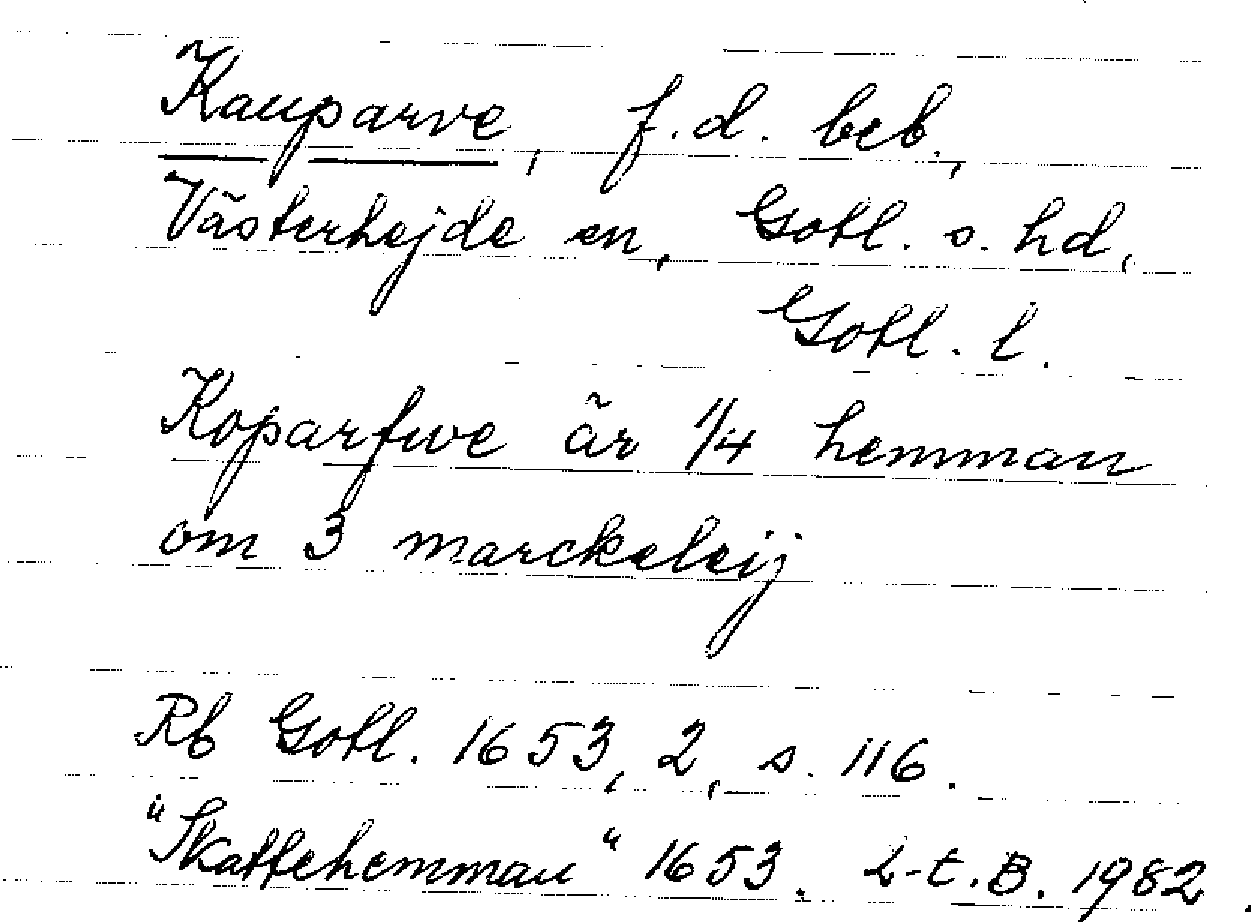 Kauparve, f.d. beb.,
Västerhejde sn, Gotl. s. hd,
Gotl. l.
Koparfwe är 1/4 hemman
om 3 marckeleij
Rb Gotl. 1653, 2, s. 116.
"Skattehemman" 1653. L-t.B. 1982.